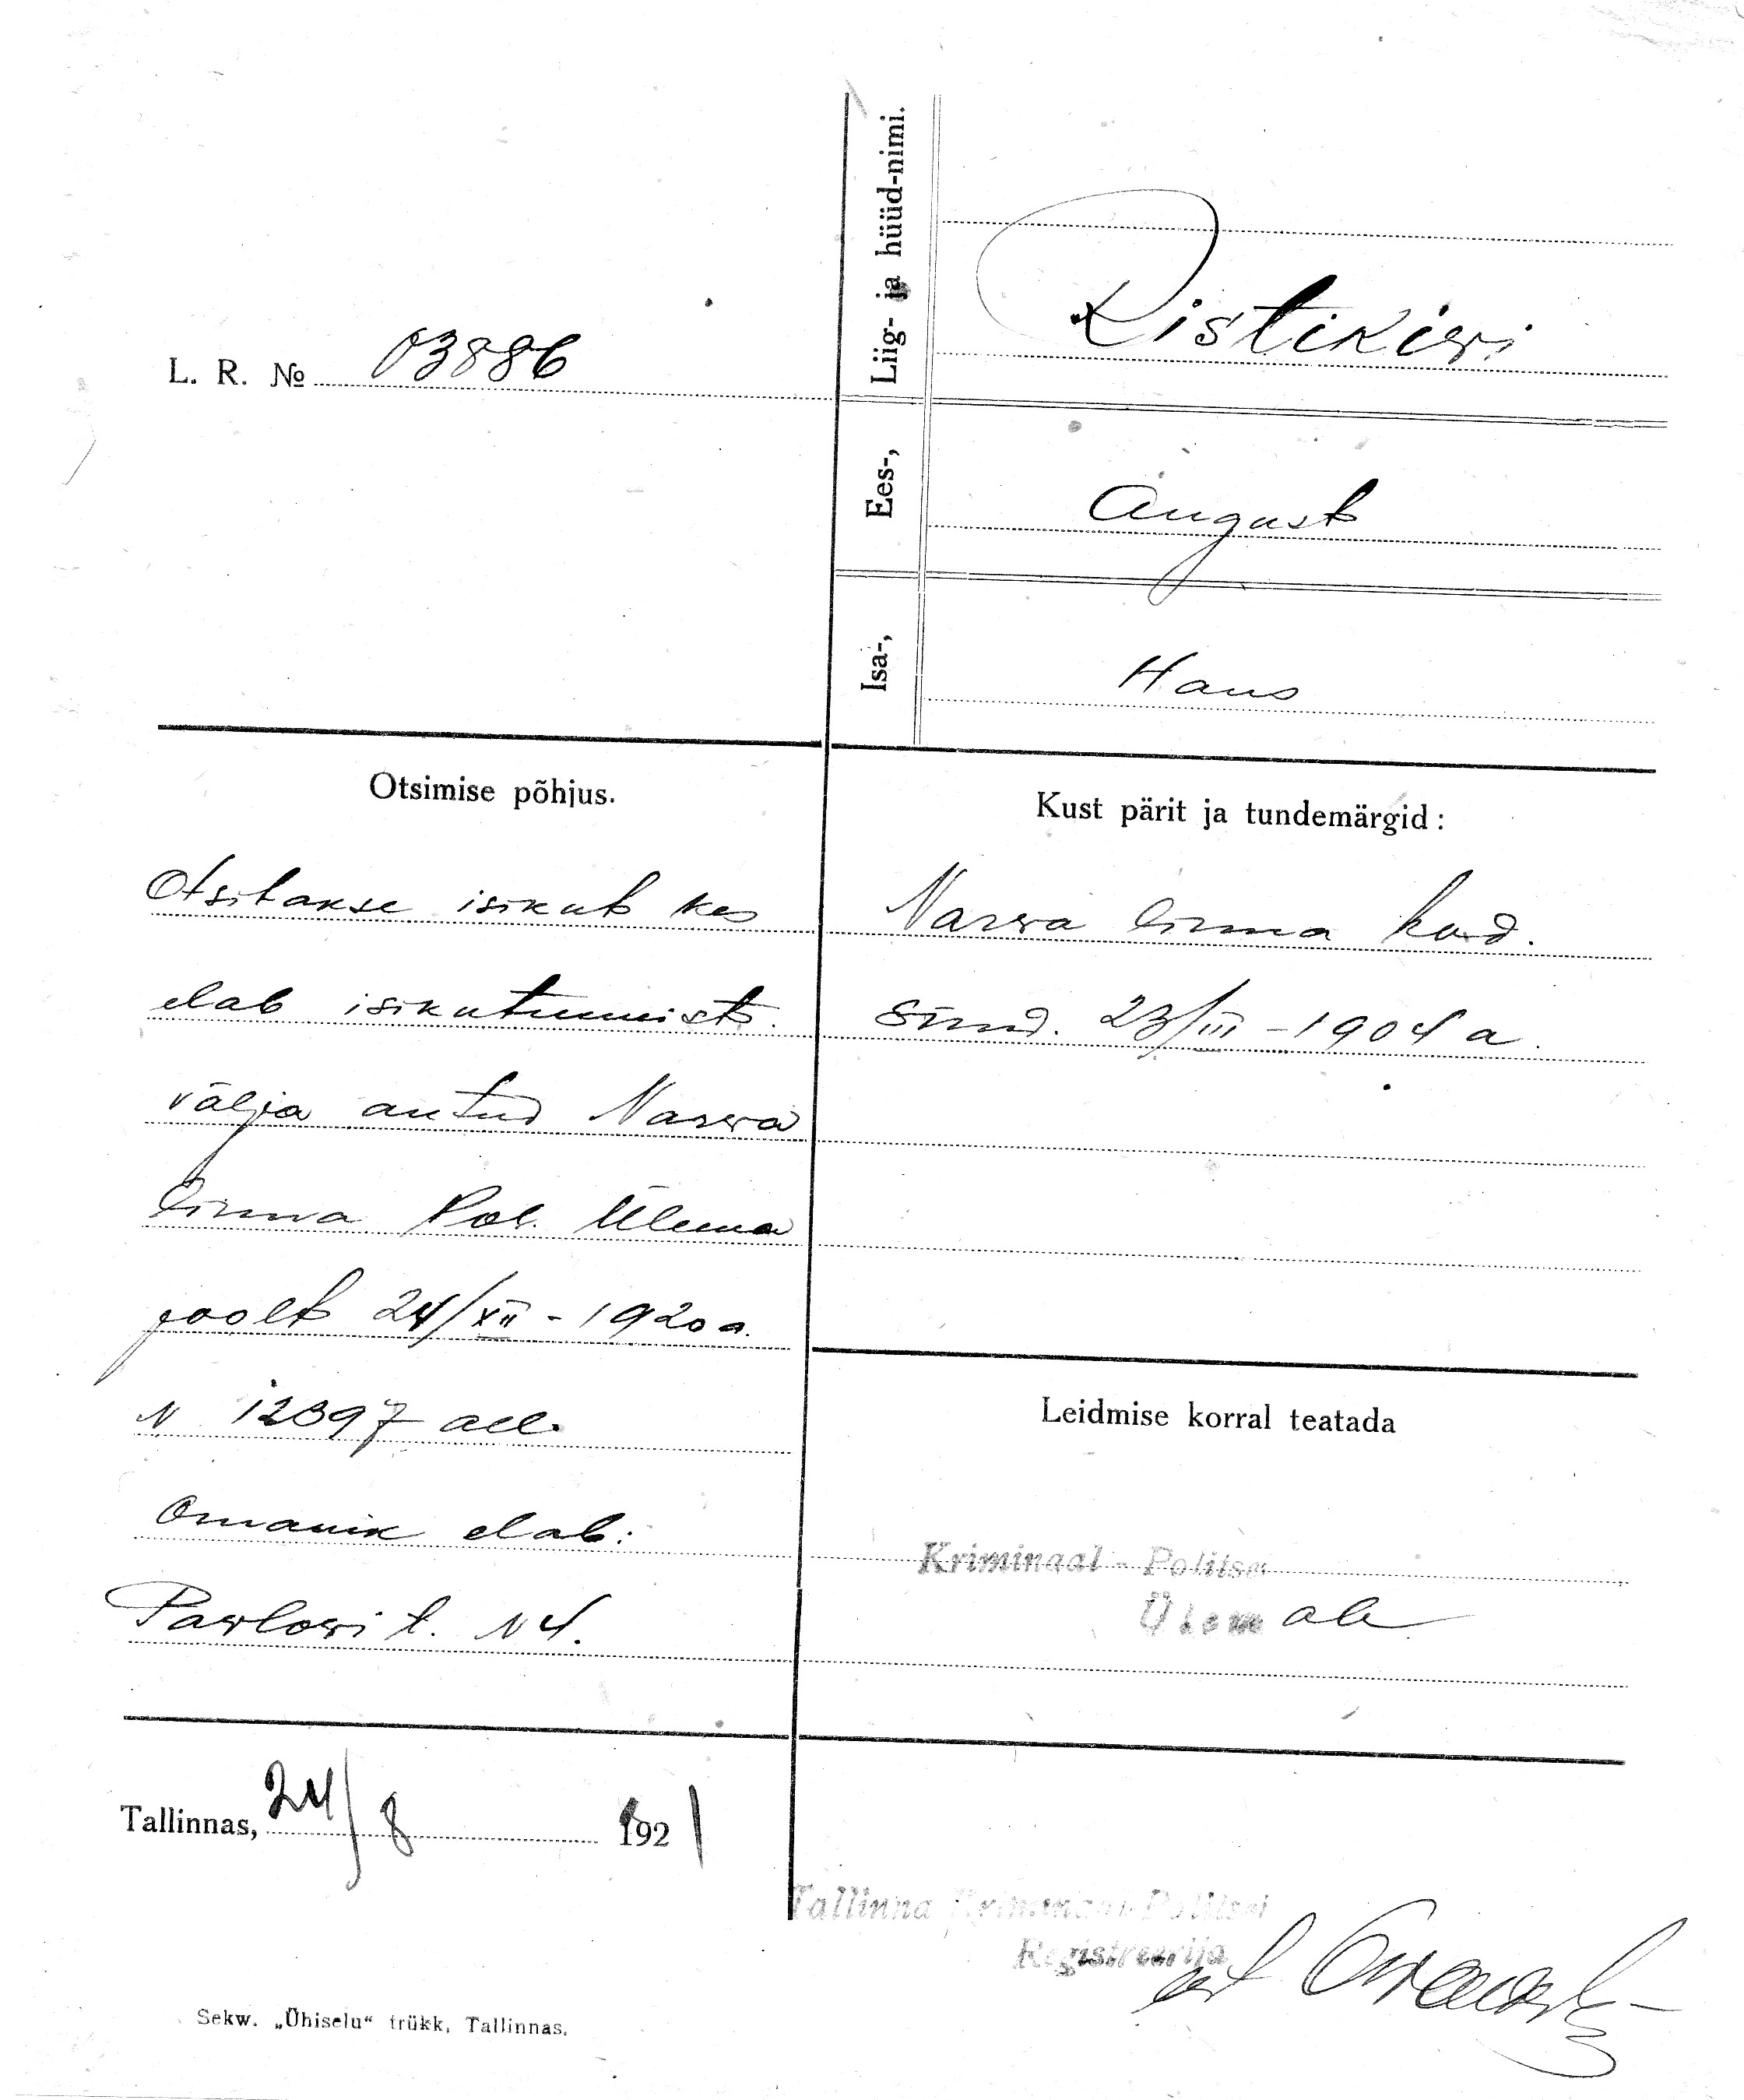 L. R. № 03886
Liig- ja hüüd-nimi.
Ristikiwi
Ees-,
August
Isa-,
Hans
Otsimise põhjus.
Otsitakse isikut kes
elab isikutunnist.
välja antud Narwa
linna Pol. Ülema
poolt 24/XII - 1920 a.
N 12397 all.
Omanik elab:
Pawlowi t. N 4.
Kust pärit ja tundemärgid:
Narwa linna kod.
Sünd. 23/III - 1904 a.
Leidmise korral teatada
Kriminaal - Politsei
Ülemale
Tallinnas, 24/8 1921
Tallinna Kriminaal-Politsei
Registreerija
Sekw. „Ühiselu“ trükk, Tallinnas.